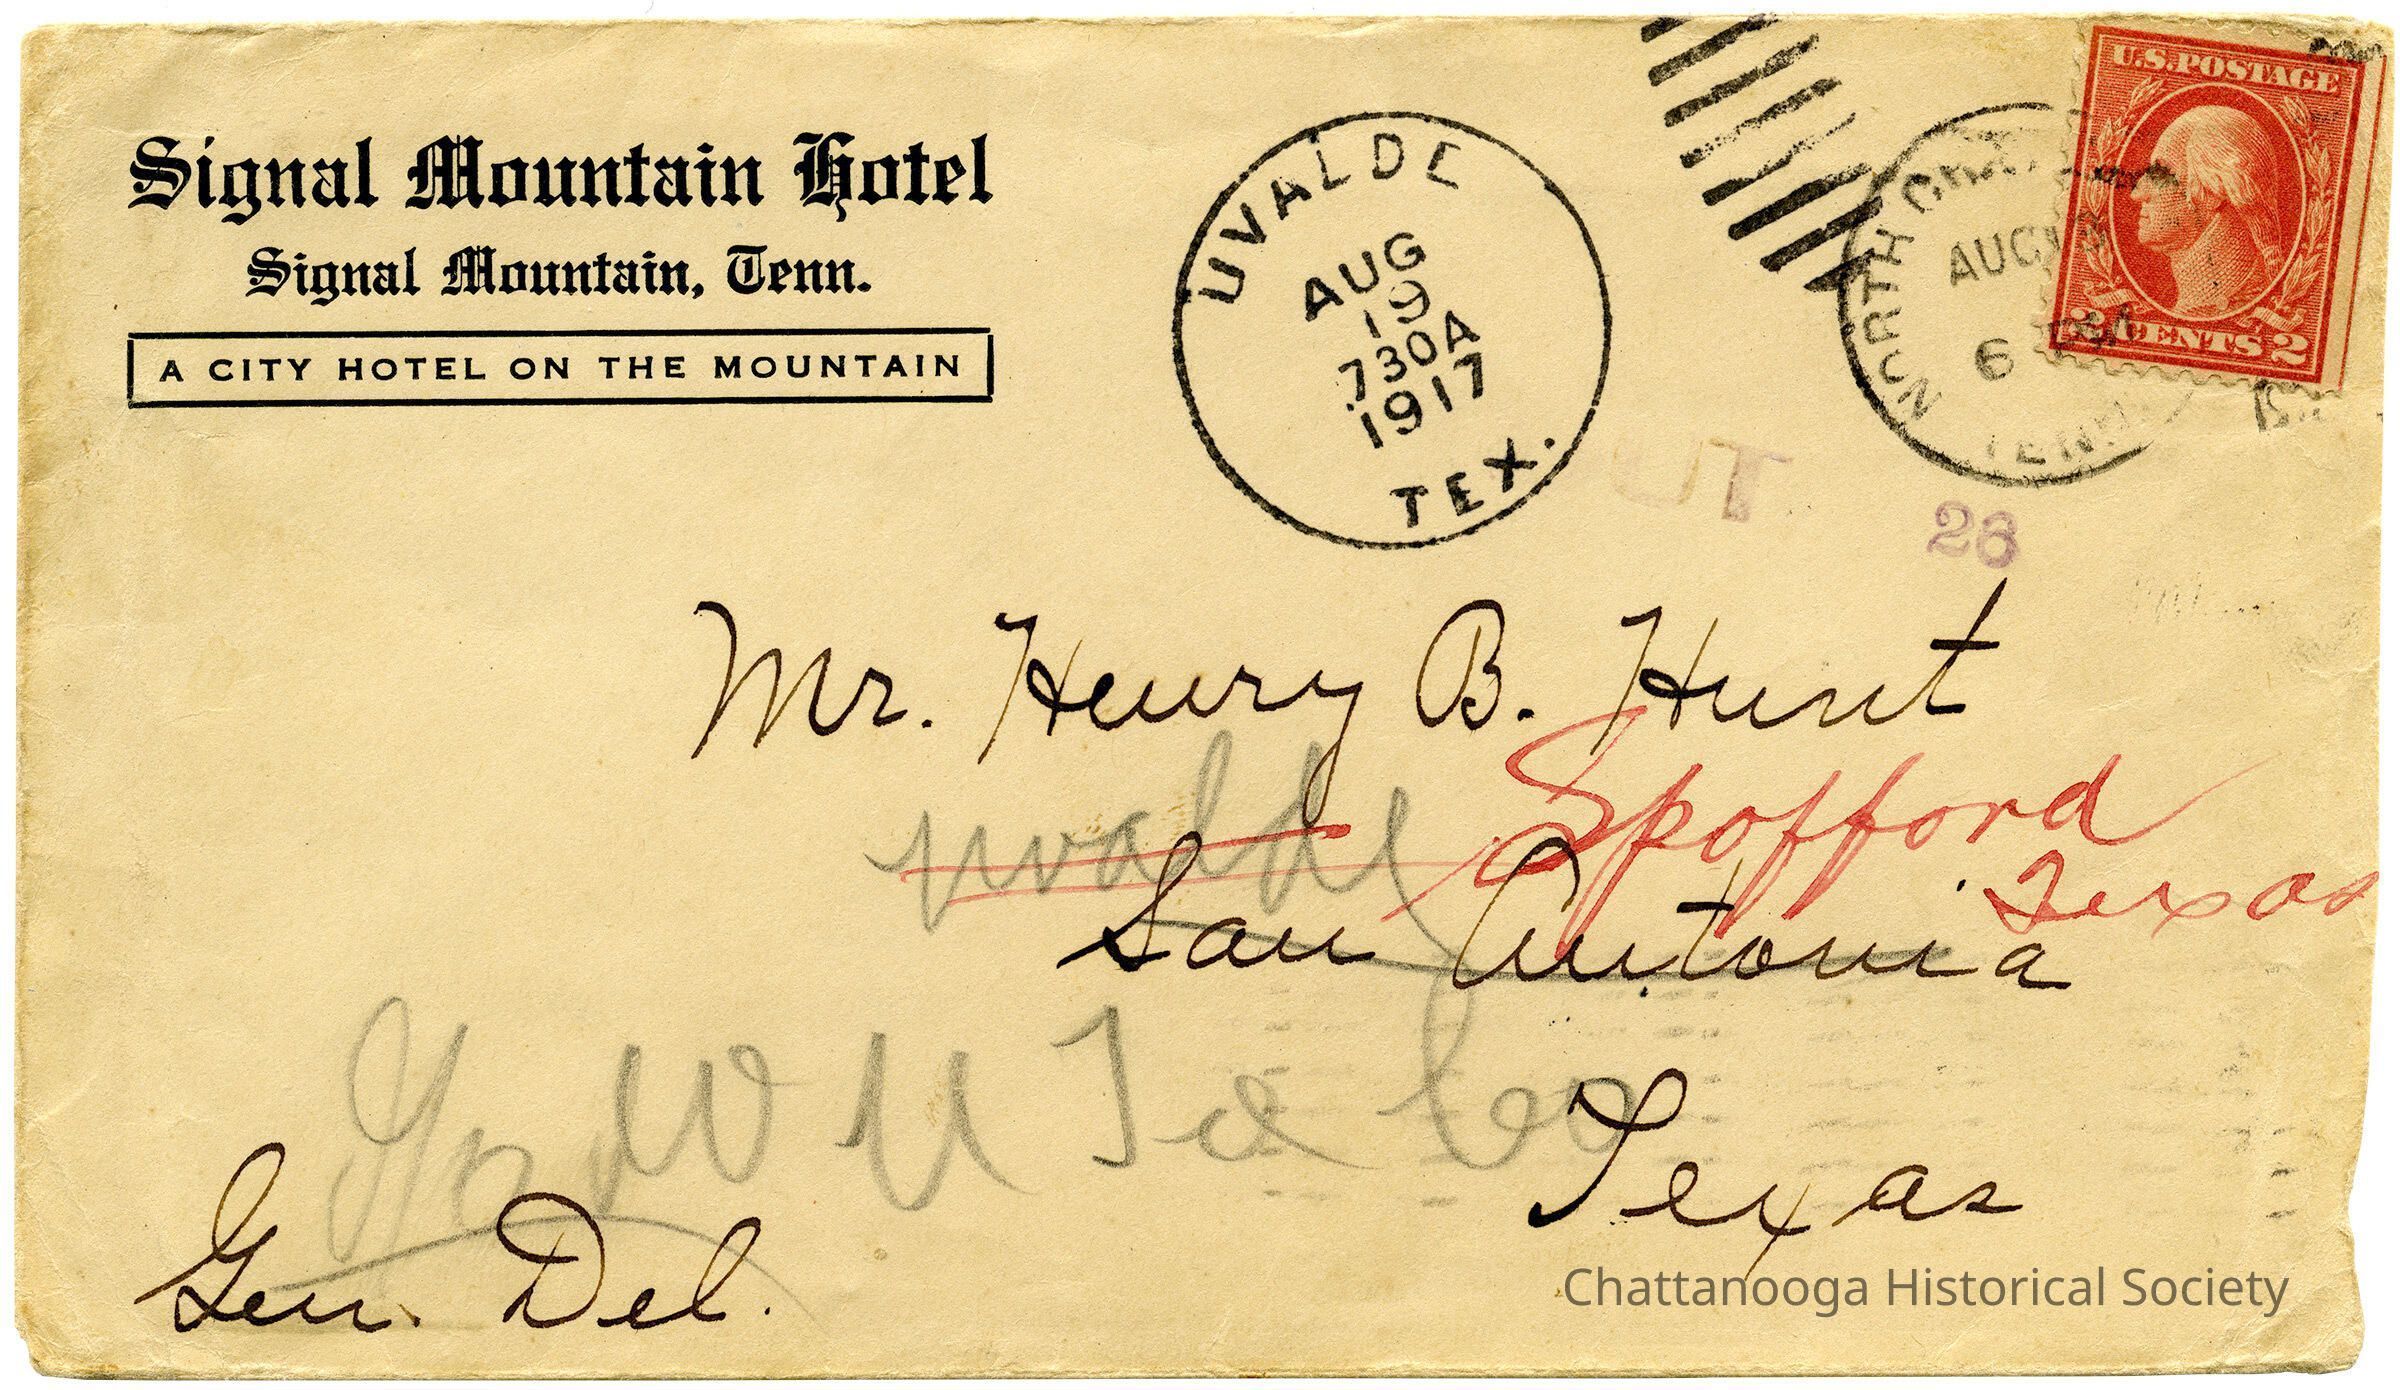 Signal Mountain Hotel
Signal Mountain, Tenn.
A CITY HOTEL ON THE MOUNTAIN
UVALDE
AUG
19
730A
1917
TEX.
NORTH
AUG
6 PM
TENN.
U.S. POSTAGE
2 CENTS 2
26
Mr. Henry B. Hunt
uvalde
Spofford
Texas
San Antonia
W U T & Co
Texas
Gen. Del.
Chattanooga Historical Society